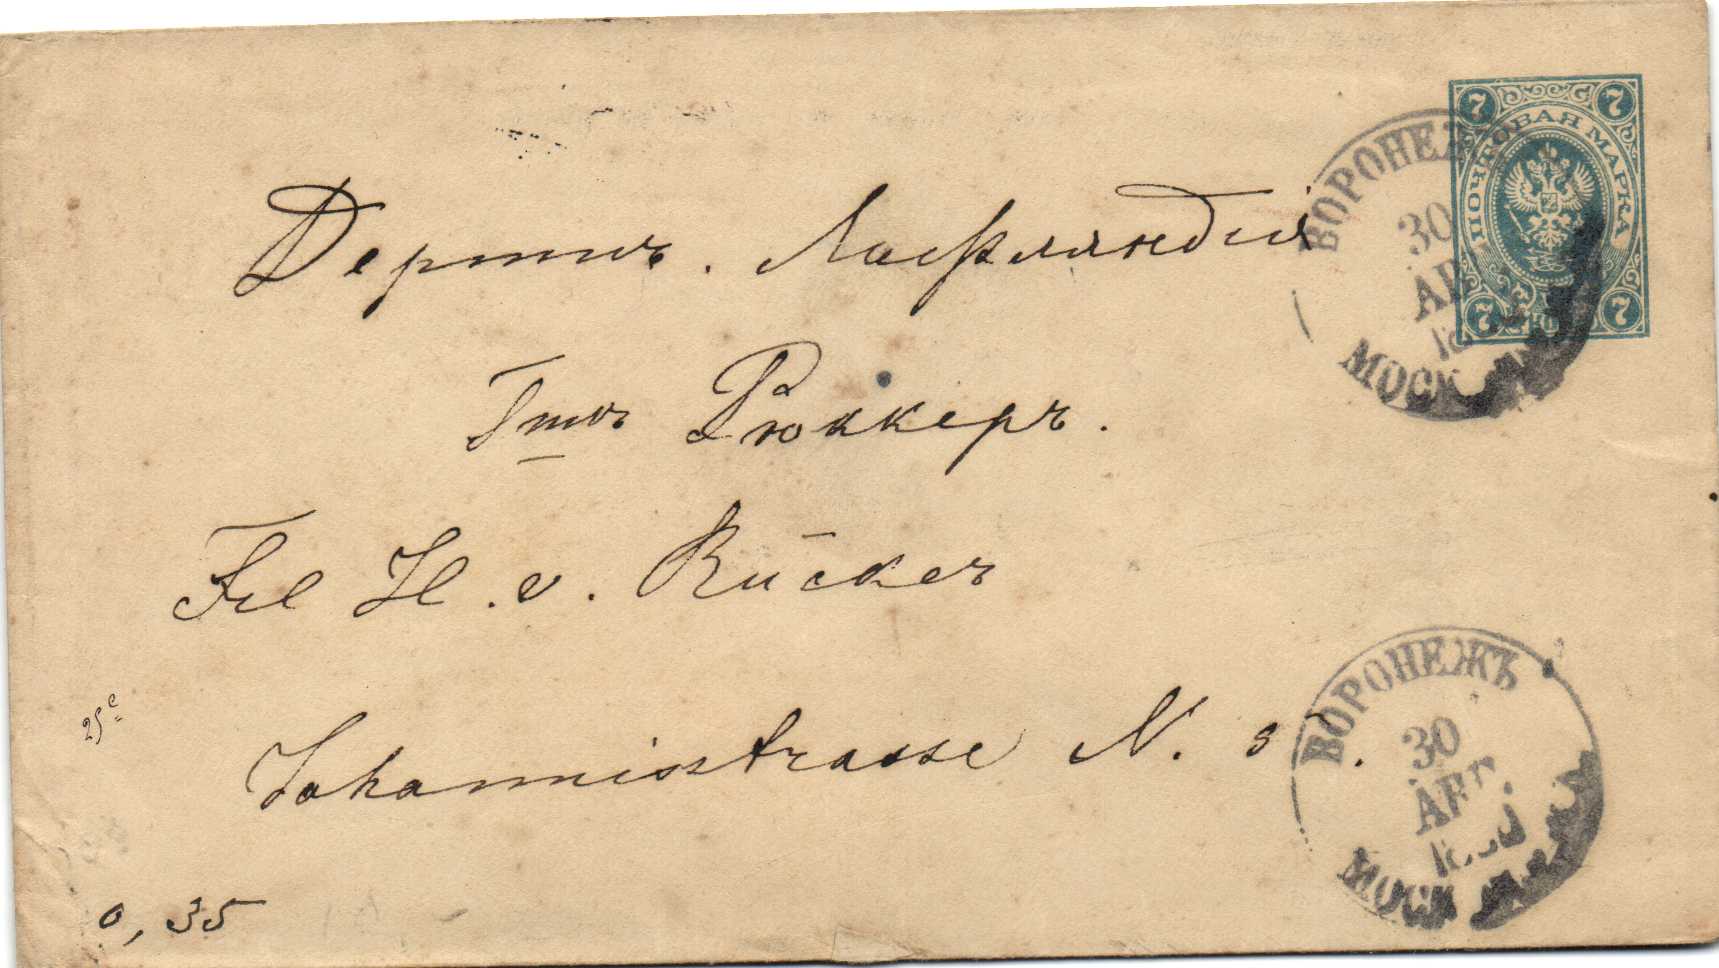 7 7
ПОЧТОВАЯ МАРКА
7 7
ВОРОНЕЖ
30
АВ
МОСК
Дерптъ. Лифляндія
Рюккеръ.
Frl H. v. Rücker
Johannisstrasse N.
ВОРОНЕЖЪ
30
АВГ.
МОСК
25
0,35